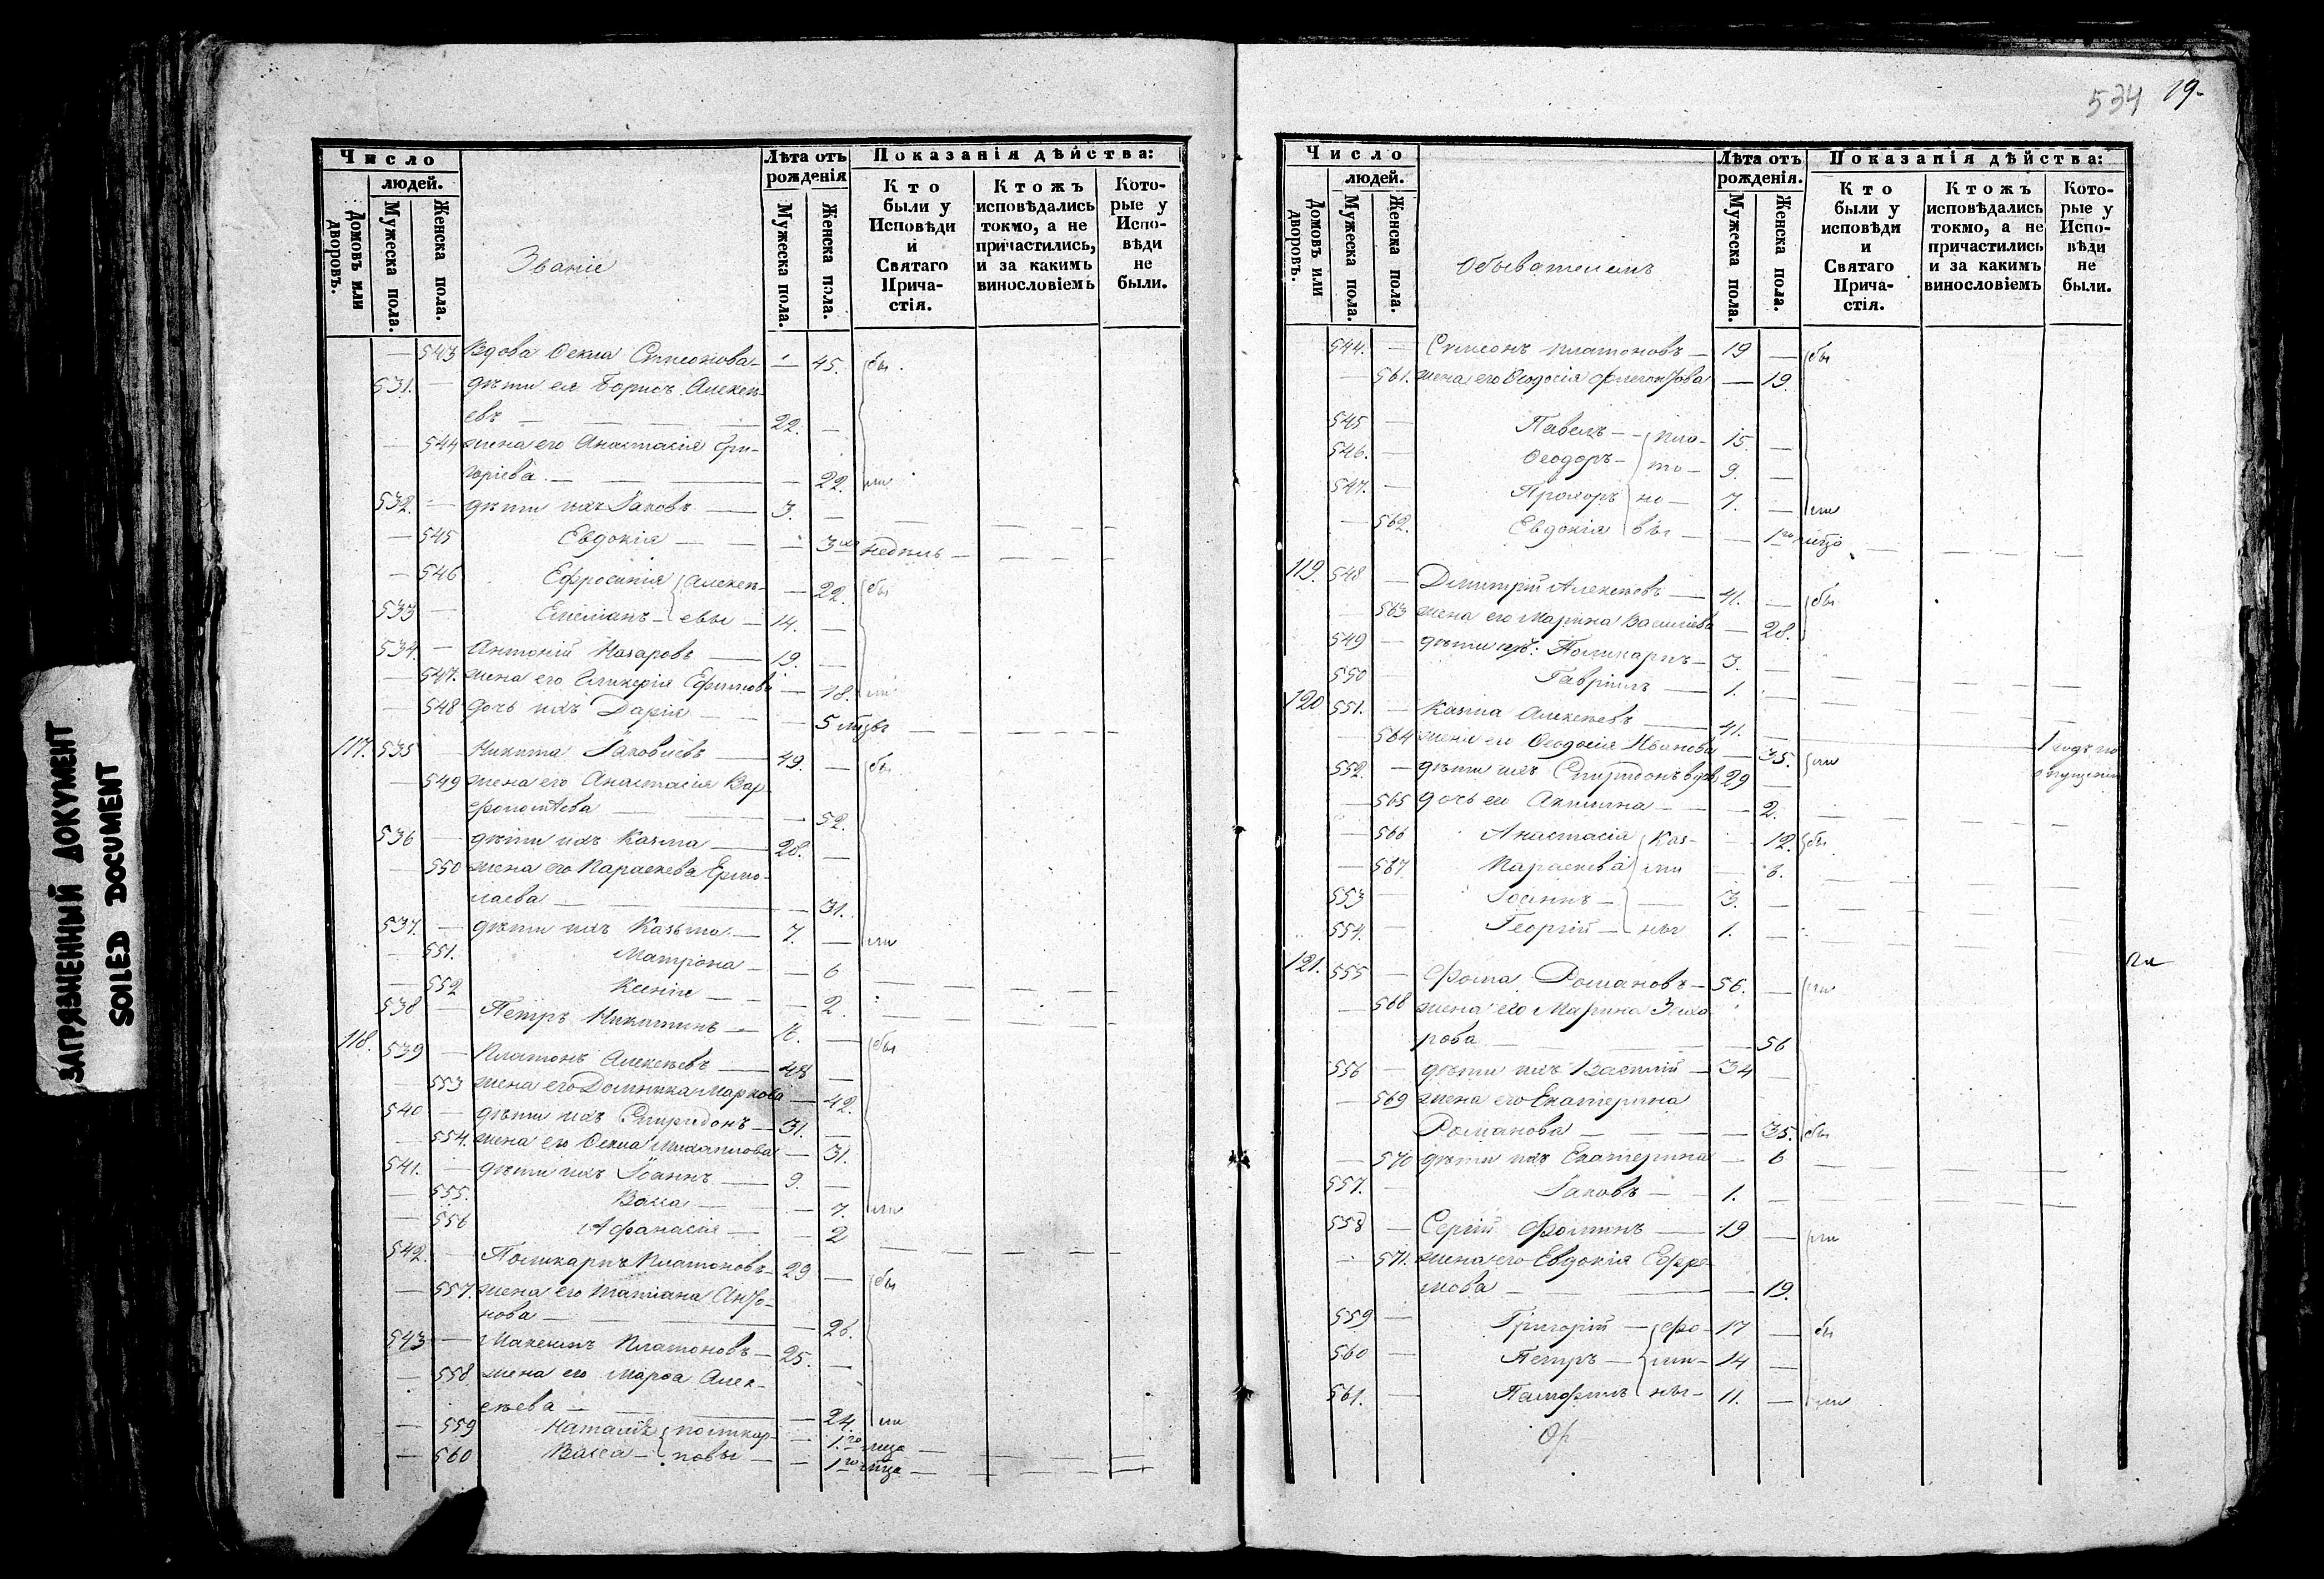 ЗАГРЯЗНЕННЫЙ ДОКУМЕНТ
SOILED DOCUMENT
Число
людей.
Домовъ или дворовъ.
Мужеска пола.
Женска пола.
Званіе
Лѣта отъ рожденія
Мужеска пола.
Женска пола.
Показанія дѣйства:
Кто были у Исповѣди и Святаго Прича-стія.
Ктожъ исповѣдались токмо, а не причастились, и за какимъ винословіемъ
Кото-рые у Испо-вѣди не были.
— 543 Вдова Ѳекла Симеонова — — 45. бы
531. — дѣти ея Борисъ Алексѣ-
евъ — 22. —
— 544 жена его Анастасія Гри-
горіева — — 22. ли
532. — дѣти ихъ Іаковъ — 3. —
— 545 Евдокія — — 3 недѣль —
— 546 Ефросинія Алексѣ- — 22. бы
533 — Емеліанъ — евы — 14. —
534. — Антоній Назаровъ — 19. —
— 547. жена его Гликерія Ефимова — 18. ли
— 548 дочь ихъ Дарія — — 5 мцзы
117. 535 — Никита Іаковлевъ — 49. — бы
— 549 жена его Анастасія Вар-
фоломѣева — — 52.
536 — дѣти ихъ Козма — 28. —
— 550 жена его Параскева Ермо-
лаева — — 31.
537. — дѣти ихъ Козьма — 7. — ли
— 551. Матрона — — 6
— 552 Ксенія — — 2.
538 — Петръ Никитинъ — 16. — бы
118. 539 — Платонъ Алексѣевъ — 48 —
— 553 жена его Домника Маркова — 42.
540 — дѣти ихъ Спиридонъ — 31. —
— 554. жена его Ѳекла Михаилова — 31.
541. — дѣти ихъ Іоаннъ — 9. —
— 555. Васса — — 7. ли
— 556 Афанасія — — 2
542. — Поликарпъ Платоновъ — 29 — бы
— 557. жена его Татіана Анто-
нова — — 26.
543 — Максимъ Платоновъ — 25. —
— 558 жена его Марѳа Алек-
сѣева — — 24 ли
— 559 Наталія поликар- — 1.го мца —
— 560 Васса — повы — — 1го мца —
534 19.
Число
людей.
Домовъ или дворовъ.
Мужеска пола.
Женска пола.
Обывателемъ
Лѣта отъ рожденія.
Мужеска пола.
Женска пола.
Показанія дѣйства:
Кто были у исповѣди и Святаго Прича-стія.
Ктожъ исповѣдались токмо, а не причастились и за какимъ винословіемъ
Кото-рые у Испо-вѣди не были.
544. — Симеонъ Платоновъ — 19 — бы
— 561. жена его Ѳеодосія Флегонтова — 19.
545 — Павелъ — Пла- 15. —
546. — Ѳеодоръ — то- 9. —
547. — Прохоръ но- 7. — ли
— 562. Евдокія вы — — 1го мца
119. 548 — Димитрій Алексѣевъ — 41. — бы
— 563 жена его Марина Василіева — 28.
549 — дѣти ихъ: Поликарпъ — 3. —
550 Гавріилъ — 1. —
120 551. — Козма Алексѣевъ — 41. —
— 564 жена его Ѳеодосія Иванова — 35. ли 1 годъ по
552. — дѣти ихъ Спиридонъ вдов. 29 — опущенію
— 565 дочь его Акилина — — 2.
— 566 Анастасія Коз- — 12. бы
— 567. Параскева ми — 8.
553 — Іоаннъ — 3. —
554. — Георгій — ны 1. —
121. 555 — Фома Романовъ — 56. — ли
— 568 жена его Марина Заха
рова — — 56
556 — дѣти ихъ Василій — 34
— 569 жена его Екатерина
Романова — — 35. бы
— 570 дѣти ихъ Екатерина — 6
557. — Іаковъ — 1. —
558 — Сергій Фоминъ — 19 — ли
— 571. жена его Евдокія Ефре-
мова — — 19.
559 — Григорій — Фо- 17 — бы
560 — Петръ — ми- 14 —
561. — Памфилъ ны — 11. — ли